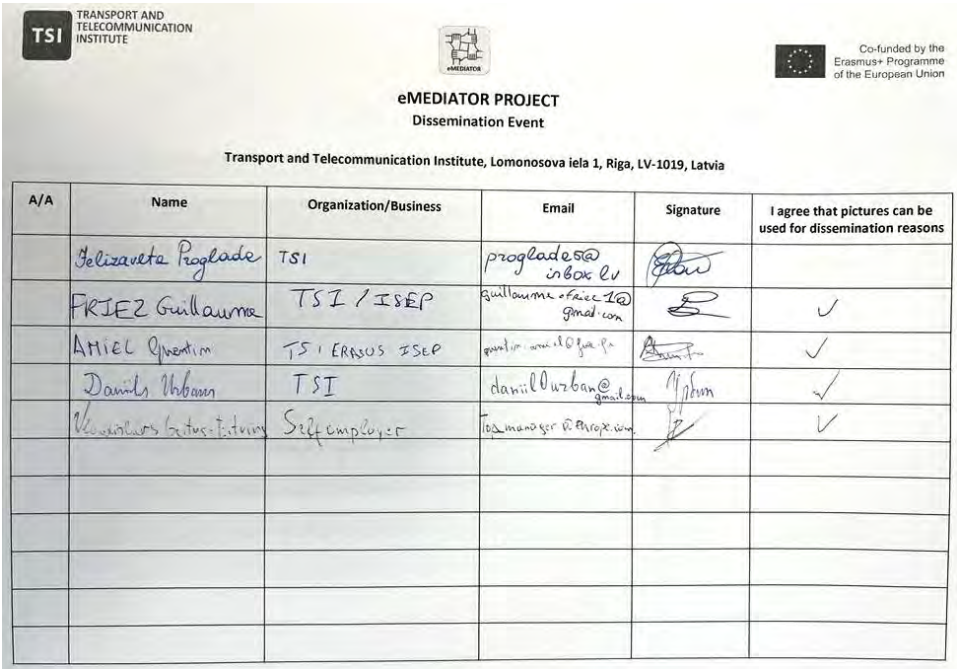 TSI
TRANSPORT AND
TELECOMMUNICATION
INSTITUTE
eMEDIATOR
Co-funded by the
Erasmus+ Programme
of the European Union
eMEDIATOR PROJECT
Dissemination Event
Transport and Telecommunication Institute, Lomonosova iela 1, Riga, LV-1019, Latvia
A/A Name Organization/Business Email Signature I agree that pictures can be
used for dissemination reasons
Jelizaveta Proglade TSI proglades@
inbox lv
FRIEZ Guillaume TSI / ISEP
gmail.com
AMIEL Quentin TSI ERASUS ISEP
Daniils Urbans TSI danielDurban@
gmail.com
Self employer Top manager